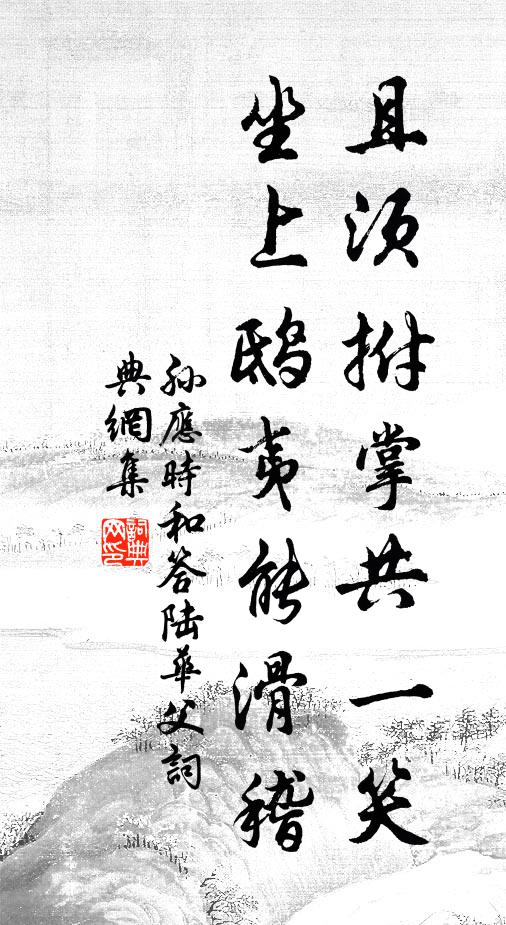 且須拊掌共一笑
坐上鴟夷能滑稽
孙應時和答陆華父詞
典網集
詞典网印